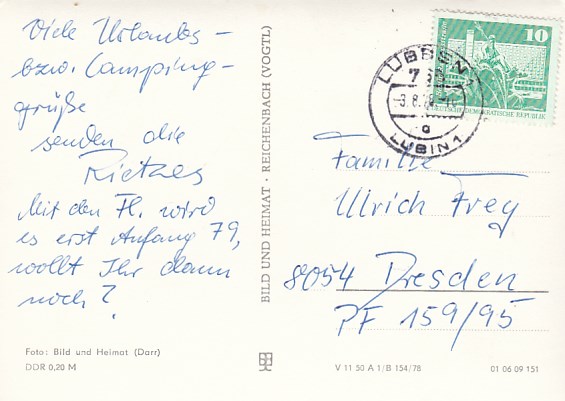 Viele Urlaubs-
bzw. Camping-
grüße
senden die
Rietzes
Mit den Fl. wird
es erst Anfang 79,
wollt Ihr dann
noch?
Foto: Bild und Heimat (Darr)
DDR 0,20 M
BILD UND HEIMAT · REICHENBACH (VOGTL)
10
DEUTSCHE DEMOKRATISCHE REPUBLIK
LÜBBEN
LUBIN 1
a
Familie
Ulrich Frey
8054 Dresden
PF 159/95
V 11 50 A 1/B 154/78
01 06 09 151